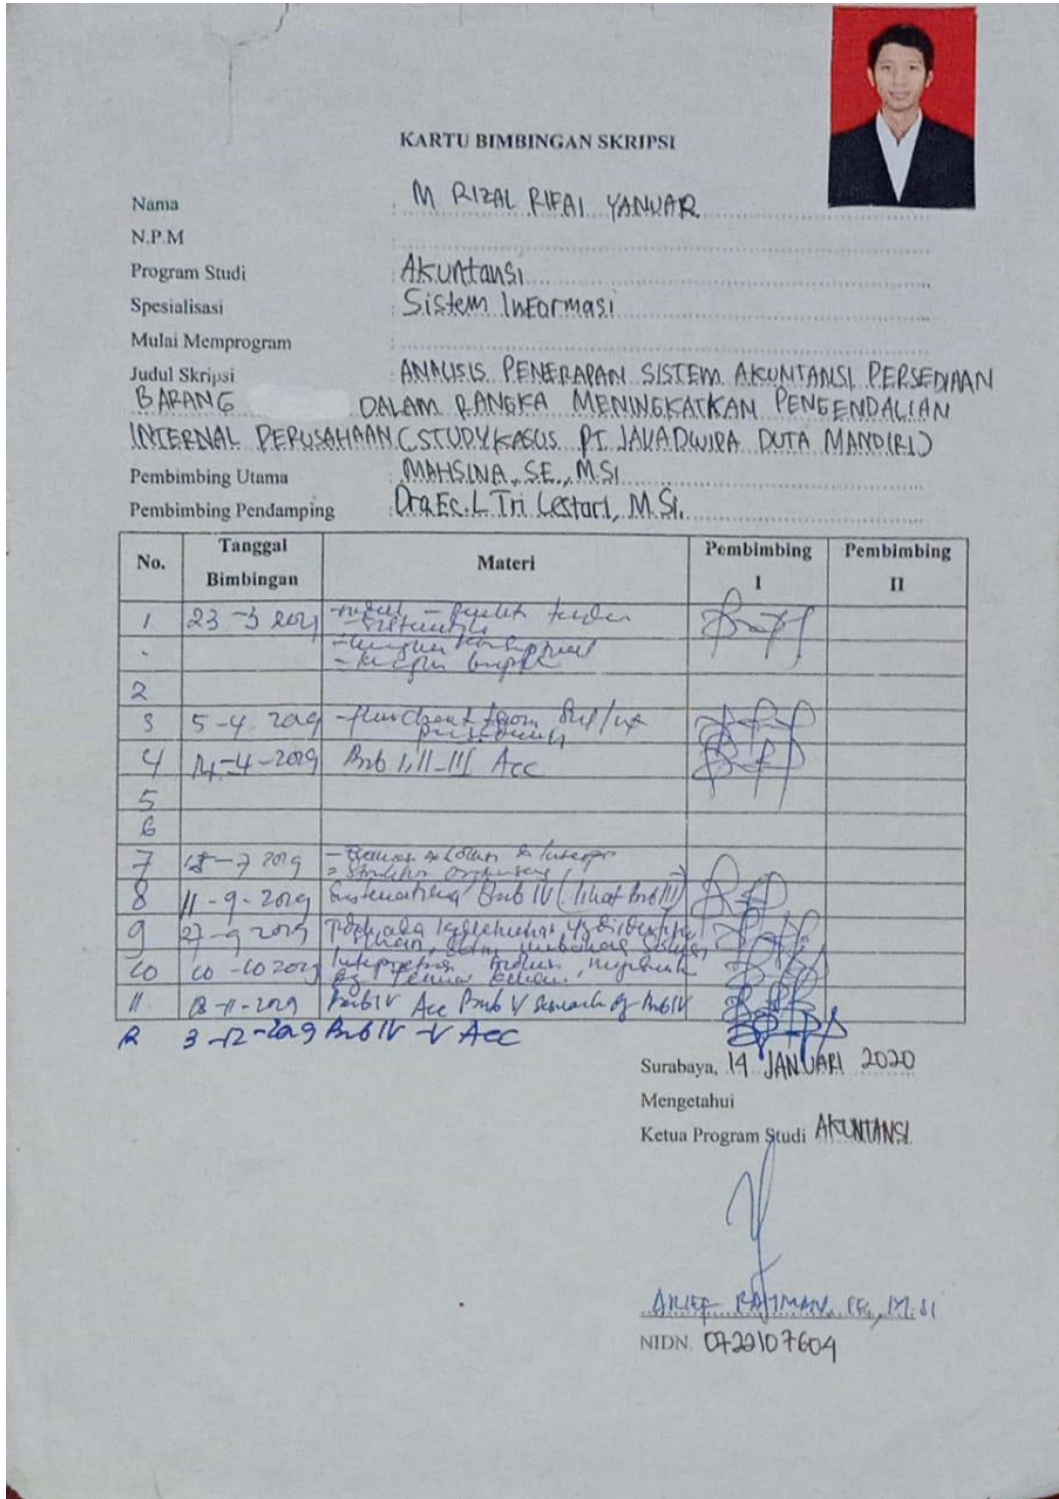 KARTU BIMBINGAN SKRIPSI
Nama : M RIZAL RIFAI YANUAR
N.P.M :
Program Studi : Akuntansi
Spesialisasi : Sistem Informasi
Mulai Memprogram :
Judul Skripsi : ANALISIS PENERAPAN SISTEM AKUNTANSI PERSEDIAAN
BARANG DALAM RANGKA MENINGKATKAN PENGENDALIAN
INTERNAL PERUSAHAAN (STUDY KASUS PT JAVA DWIPA DUTA MANDIRI)
Pembimbing Utama : MAHSINA, SE., M.SI
Pembimbing Pendamping : Dra.Ec. L Tri Lestari, M.Si.
No. Tanggal Bimbingan Materi Pembimbing I Pembimbing II
1. 23-3 2019
2
3 5-4-2019 - flowchart
4 14-4-2019 Bab I, II-III Acc
5
6
7 18-7 2019
- Struktur organisasi
8 11-9-2019 Sistematika Bab IV (lihat Bab III)
9 27-9 2019
10 10-10 2019
11. 18-11-2019 Bab IV Acc Bab V
12 3-12-2019 Bab IV-V Acc
Surabaya, 14 JANUARI 2020
Mengetahui
Ketua Program Studi AKUNTANSI
ARIEF RAHMAN, SE., M.SI
NIDN. 0722107604